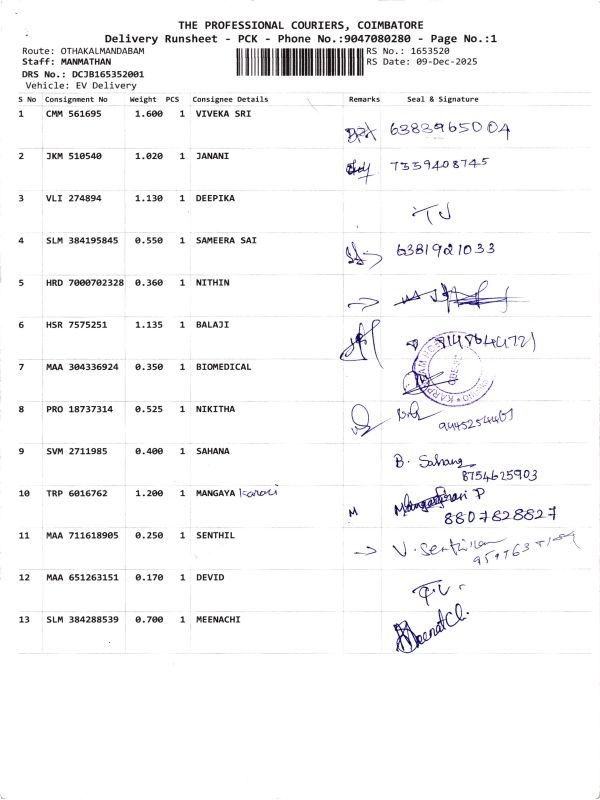 THE PROFESSIONAL COURIERS, COIMBATORE
Delivery Runsheet - PCK - Phone No.:9047080280 - Page No.:1
Route: OTHAKALMANDABAM RS No.: 1653520
Staff: MANMATHAN RS Date: 09-Dec-2025
DRS No.: DCJB165352001
Vehicle: EV Delivery
S No Consignment No Weight PCS Consignee Details Remarks Seal & Signature
1 CMM 561695 1.600 1 VIVEKA SRI
6383965004
2 JKM 510540 1.020 1 JANANI
7339408745
3 VLI 274894 1.130 1 DEEPIKA
4 SLM 384195845 0.550 1 SAMEERA SAI
6381921033
5 HRD 7000702328 0.360 1 NITHIN
6 HSR 7575251 1.135 1 BALAJI
7 MAA 304336924 0.350 1 BIOMEDICAL
8 PRO 18737314 0.525 1 NIKITHA
9 SVM 2711985 0.400 1 SAHANA
B. Sahana
8754625903
10 TRP 6016762 1.200 1 MANGAYA
M
8807828827
11 MAA 711618905 0.250 1 SENTHIL
V. Senthil
12 MAA 651263151 0.170 1 DEVID
13 SLM 384288539 0.700 1 MEENACHI